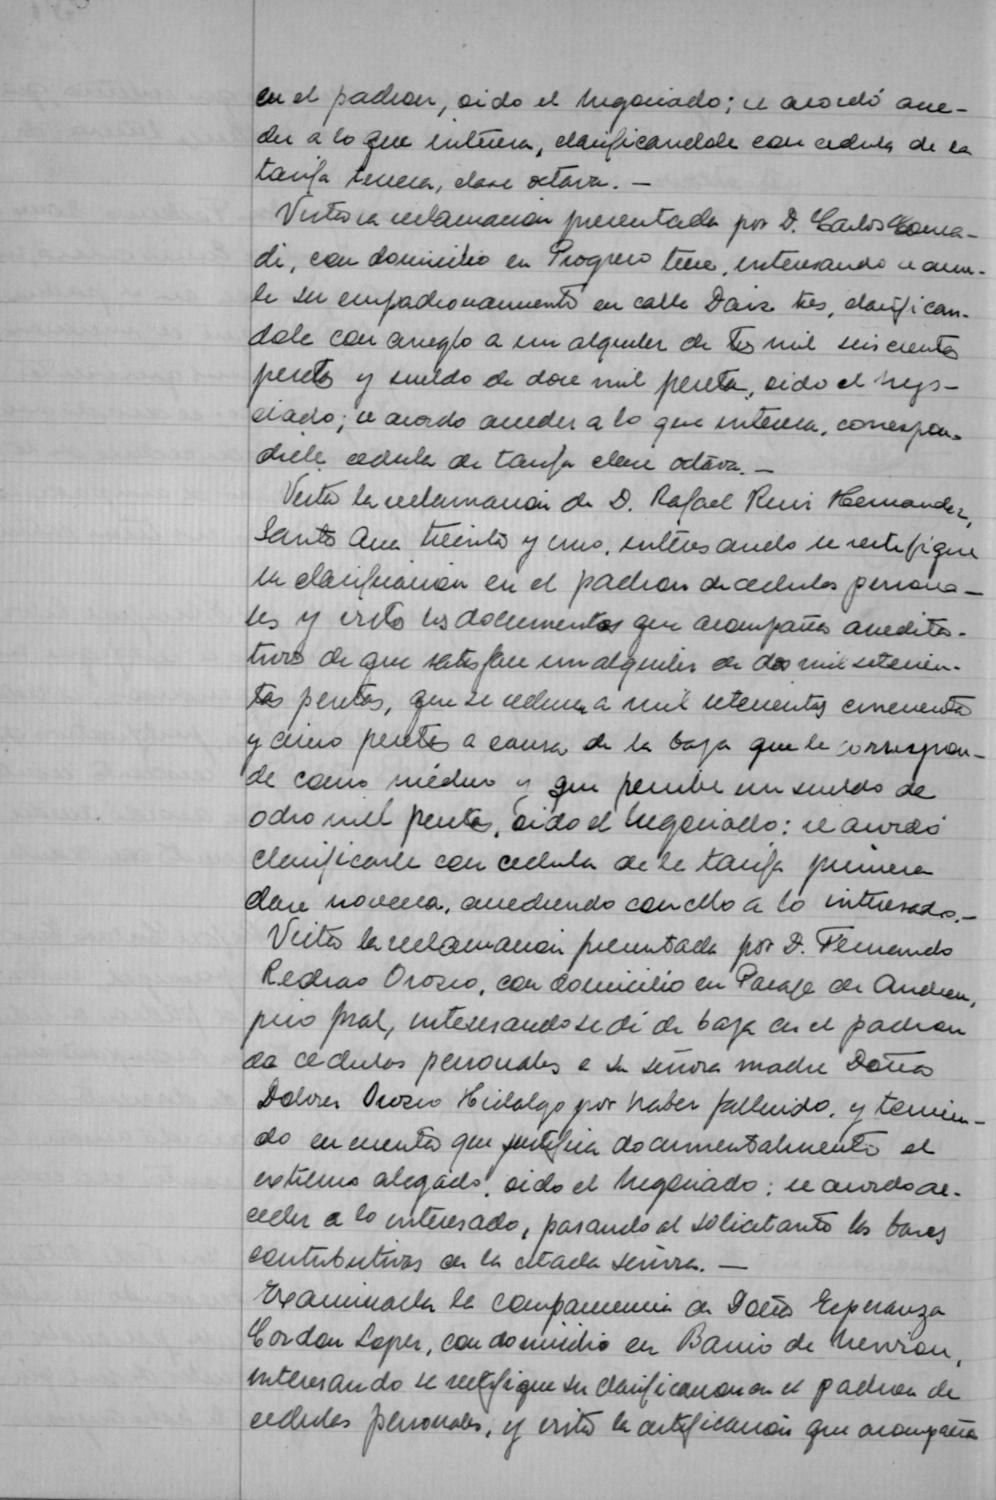 en el padron, oido el Negociado; se acordó acce-
der a lo que interesa, clasificandole con cedula de la
tarifa tercera, clase octava. —
Vista la reclamación presentada por D. Carlos
di, con domicilio en Progreso trece, interesando se anu-
le su empadronamiento en calle Daiz tres, clasifican-
dole con arreglo a un alquiler de tres mil seiscientas
pesetas y sueldo de doce mil pesetas, oido el Nego-
ciado; se acordo acceder a lo que interesa, correspon-
diele cedula de tarifa clase octava. —
Vista la reclamación de D. Rafael Ruiz Hernandez,
Santa Ana treinta y uno, interesando se rectifique
su clasificación en el padron de cedulas persona-
les y visto los documentos que acompaña acredita-
tivos de que satisface un alquiler de dos mil setecien-
tas pesetas, que se reduce a mil setecientas cincuenta
y cinco pesetas a causa de la baja que le correspon-
de como médico y que percibe un sueldo de
ocho mil pesetas, oido el Negociado; se acordó
clasificarle con cedula de la tarifa primera
clase novena, accediendo con ello a lo interesado. —
Vista la reclamación presentada por D. Fernando
Orozco, con domicilio en Pasage de Andreu,
piso pral, interesando se dé de baja en el padron
de cedulas personales a su señora madre Doña
Dolores Orozco Hidalgo por haber fallecido, y tenien-
do en cuenta que justifica documentalmente el
extremo alegado, oido el Negociado; se acordo ac-
ceder a lo interesado, pasando al solicitante las bases
contributivas de la citada señora. —
Examinada la comparecencia de Doña Esperanza
Cordon Lopez, con domicilio en Barrio de
interesando se rectifique su clasificacion en el padron de
cedulas personales, y visto la certificación que acompaña